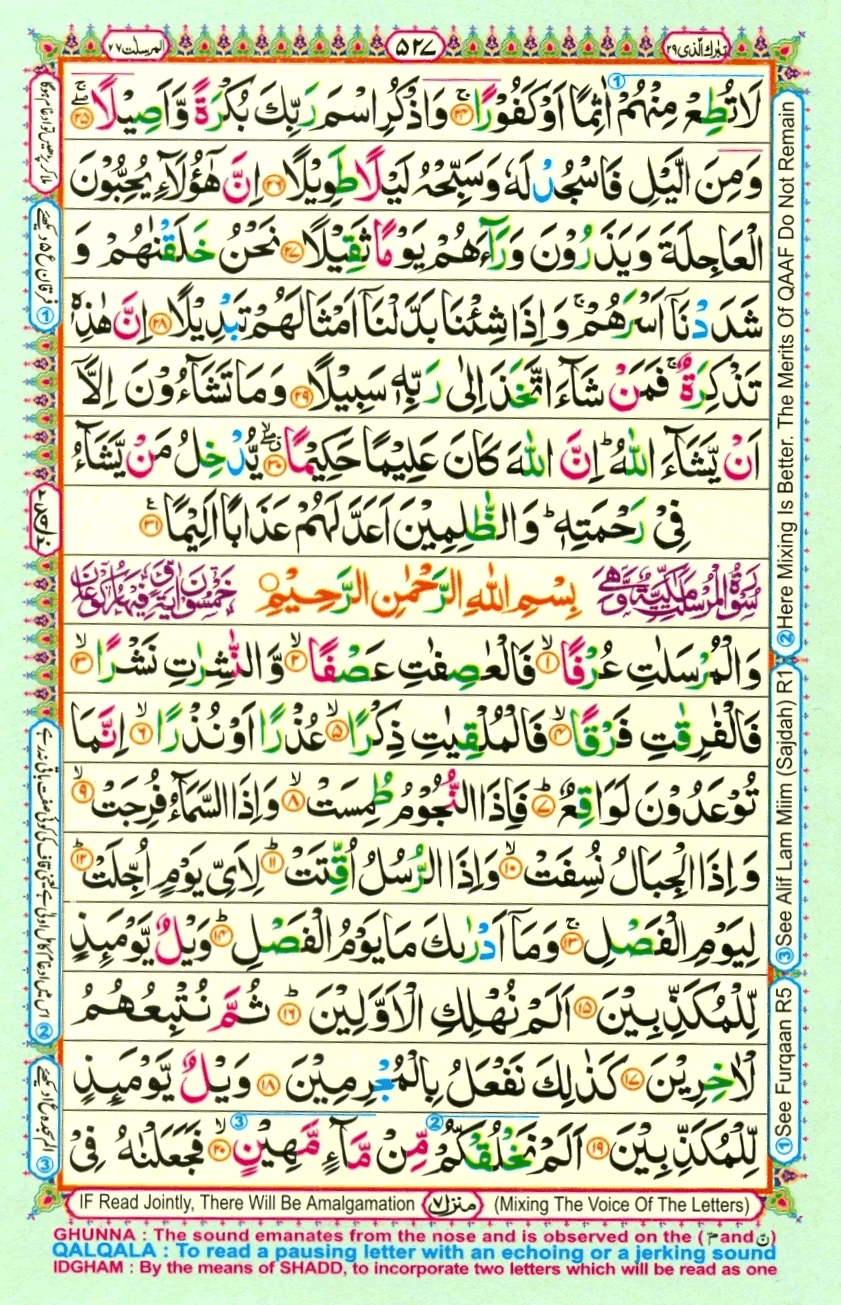 المرسلت ٧٧
٥٢٧
تبرك الذى ٢٩
لَا تُطِعْ مِنْهُمْ اٰثِمًا اَوْ كَفُوْرًا ۚ‏﴿۲۴﴾ وَاذْكُرِ اسْمَ رَبِّكَ بُكْرَةً وَّاَصِيْلًا ۖۚ‏﴿۲۵﴾
وَمِنَ الَّيْلِ فَاسْجُدْ لَهٗ وَسَبِّحْهُ لَيْلًا طَوِيْلًا ﴿۲۶﴾ اِنَّ هٰٓؤُلَآءِ يُحِبُّوْنَ
الْعَاجِلَةَ وَيَذَرُوْنَ وَرَآءَهُمْ يَوْمًا ثَقِيْلًا ﴿۲۷﴾ نَحْنُ خَلَقْنٰهُمْ وَ
شَدَدْنَاۤ اَسْرَهُمْ ۚ وَاِذَا شِئْنَا بَدَّلْنَاۤ اَمْثَالَهُمْ تَبْدِيْلًا ﴿۲۸﴾ اِنَّ هٰذِهٖ
تَذْكِرَةٌ ۚ فَمَنْ شَآءَ اتَّخَذَ اِلٰى رَبِّهٖ سَبِيْلًا ﴿۲۹﴾ وَمَا تَشَآءُوْنَ اِلَّاۤ
اَنْ يَّشَآءَ اللّٰهُ ؕ اِنَّ اللّٰهَ كَانَ عَلِيْمًا حَكِيْمًا ۖ ﴿۳۰﴾ يُّدْخِلُ مَنْ يَّشَآءُ
فِىْ رَحْمَتِهٖ ؕ وَالظّٰلِمِيْنَ اَعَدَّ لَهُمْ عَذَابًا اَلِيْمًا ﴿۳۱﴾
سُوْرَةُ الْمُرْسَلٰتِ مَكِّيَّةٌ وَّهِىَ بِسْمِ اللّٰهِ الرَّحْمٰنِ الرَّحِيْمِ خَمْسُوْنَ اٰيَةً وَّفِيْهَا رُكُوْعَانِ
وَالْمُرْسَلٰتِ عُرْفًا ۙ ﴿۱﴾ فَالْعٰصِفٰتِ عَصْفًا ۙ ﴿۲﴾ وَّالنّٰشِرٰتِ نَشْرًا ۙ ﴿۳﴾
فَالْفٰرِقٰتِ فَرْقًا ۙ ﴿۴﴾ فَالْمُلْقِيٰتِ ذِكْرًا ۙ ﴿۵﴾ عُذْرًا اَوْ نُذْرًا ۙ ﴿۶﴾ اِنَّمَا
تُوْعَدُوْنَ لَوَاقِعٌ ؕ ﴿۷﴾ فَاِذَا النُّجُوْمُ طُمِسَتْ ۙ ﴿۸﴾ وَاِذَا السَّمَآءُ فُرِجَتْ ۙ ﴿۹﴾
وَاِذَا الْجِبَالُ نُسِفَتْ ۙ ﴿۱۰﴾ وَاِذَا الرُّسُلُ اُقِّتَتْ ؕ ﴿۱۱﴾ لِاَىِّ يَوْمٍ اُجِّلَتْ ؕ ﴿۱۲﴾
لِيَوْمِ الْفَصْلِ ۚ ﴿۱۳﴾ وَمَاۤ اَدْرٰىكَ مَا يَوْمُ الْفَصْلِ ؕ ﴿۱۴﴾ وَيْلٌ يَّوْمَئِذٍ
لِّلْمُكَذِّبِيْنَ ﴿۱۵﴾ اَلَمْ نُهْلِكِ الْاَوَّلِيْنَ ؕ ﴿۱۶﴾ ثُمَّ نُتْبِعُهُمُ
الْاٰخِرِيْنَ ﴿۱۷﴾ كَذٰلِكَ نَفْعَلُ بِالْمُجْرِمِيْنَ ﴿۱۸﴾ وَيْلٌ يَّوْمَئِذٍ
لِّلْمُكَذِّبِيْنَ ﴿۱۹﴾ اَلَمْ نَخْلُقْكُّمْ مِّنْ مَّآءٍ مَّهِيْنٍ ۙ ﴿۲۰﴾ فَجَعَلْنٰهُ فِىْ
② Here Mixing Is Better. The Merits Of QAAF Do Not Remain
③ See Alif Lam Miim (Sajdah) R1
① See Furqaan R5
IF Read Jointly, There Will Be Amalgamation منزل ٧ (Mixing The Voice Of The Letters)
GHUNNA : The sound emanates from the nose and is observed on the (م and ن)
QALQALA : To read a pausing letter with an echoing or a jerking sound
IDGHAM : By the means of SHADD, to incorporate two letters which will be read as one